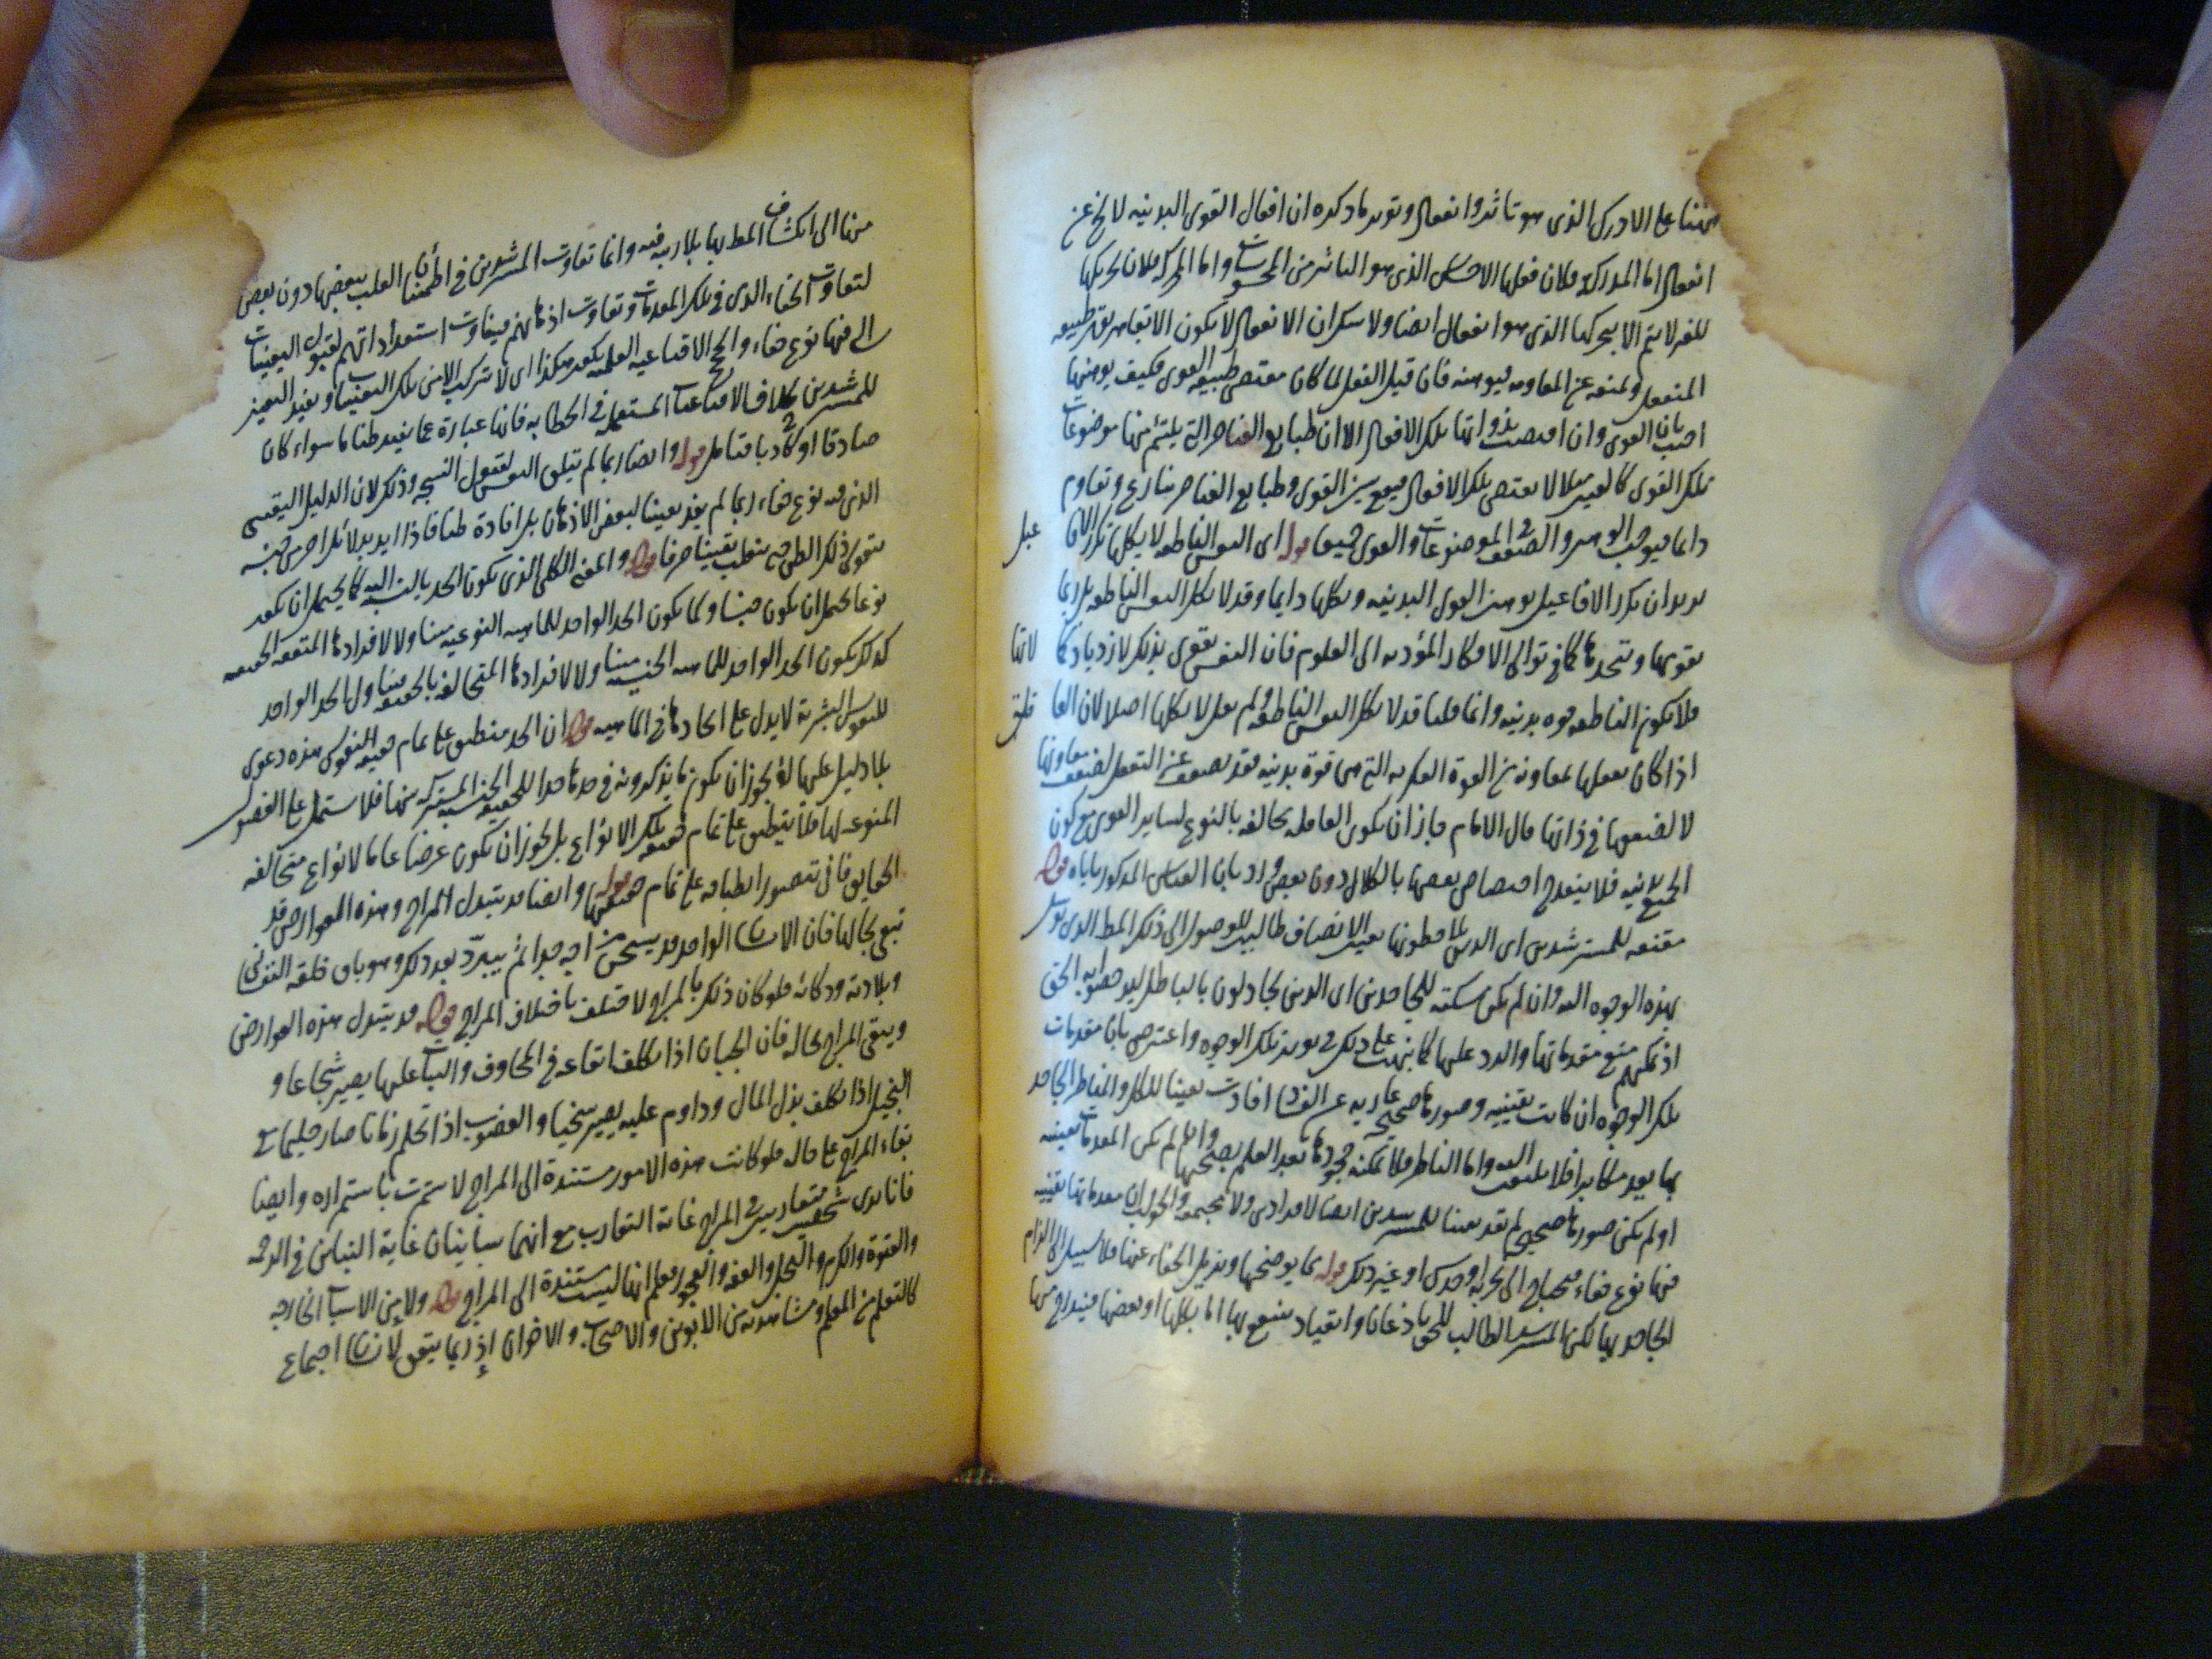 على الادراك الذى هو تاثر وانفعال ويؤيد ما ذكره ان افعال القوى البدنيه لا تخ عن
انفعال اما المدركة فلان فعلها الاحساس الذى هو التاثر من المحسوسات واما المحركة فلان تحريكها
للغير لا يتم الا بتحركها الذى هو انفعال ايضا ولا شك ان الانفعال لا يكون الا بقاهر يقهر طبيعه
المنفعل ويمنعه عن المقاومه فيوهنه فان قيل الفعل لما كان مقتضى طبيعة القوى فكيف يوهنها
اجيب بان القوى وان اقتضت بذواتها تلك الافعال الا ان طبايع العناصر التى يلتئم منها موضوعات
تلك القوى لا يقتضى تلك الافعال فيقع بين القوى وطبايع العناصر تنازع وتقاوم
دايما فيوجب الوهن والضعف فى الموضوعات والقوى جميعا قوله اى النفس الناطقه لا يكلها تكرر الافا عيل
يريد ان تكرر الافاعيل يوهن القوى البدنيه ويكلها دايما وقد لا يكل النفس الناطقه بل ربما
يقويها كما فى توالى الافكار المؤديه الى العلوم فان النفس يقوى بذلك لازدياد كمالاتها
فلا يكون الناطقه قوه بدنيه وانما قلنا قد لا يكل النفس الناطقه ولم يقل لا يكلها اصلا لان العاقله
اذا كان تعقلها بمعاونة من القوة الفكريه التى هى قوة بدنيه فقد يضعف عن التعقل لضعف معاونها
لا لضعفها فى ذاتها قال الامام جاز ان يكون العاقله مخالفه بالنوع لساير القوى مع كون
الجميع بدنيه فلا يبعد اختصاص بعضها بالكلال دون بعض ورد بان القياس المذكور ياباه قوله
مقنعه للمسترشدين اى الذين يلاحظونها بعين الانصاف طالبين للوصول الى ذلك المط الذى توسل
بهذه الوجوه اليه وان لم يكن مسكته للجاحدين اى الذين يجادلون بالباطل ليدحضوا به الحق
اذ يمكنهم منع مقدماتها والرد عليها كما نبهت على ذلك فى تلك الوجوه واعترض بان مقدمات
تلك الوجوه ان كانت يقينيه وصورها صحيحه عاريه عن الفساد افادت يقينا للكل والمناظر الجاحد
بها يعد مكابرا فلا يلتفت اليه واما الناظر فلا يمكنه جحودها بعد العلم بصحتها وان لم يكن المقدمات يقينيه
او لم يكن صورها صحيحه لم تفد يقينا للمسترشدين ايضا لا فرادى ولا مجتمعه والجواب ان مقدماتها يقينيه
فيها نوع خفاء محتاج الى تجربه او حدس او غير ذلك مما يوضحها ويزيل الخفاء عنها فلا سبيل الى الزام
الجاحد بها لكن المسترشد الطالب للحق باذعان وانقياد ينتفع بها اما بكلها او بعضها فيندرج منها
منها الى انكشاف المط بها بلا ريبه فيه وانما تفاوت المسترشدين فى اطمئنان القلب ببعضها دون بعض
لتفاوت الخفاء الذى فى تلك المقدمات وتفاوت اذهانهم وتفاوت استعداداتهم لقبول اليقينيات
التى فيها نوع خفاء والحجج الاقناعيه العلميه لا تتركب الا من تلك اليقينيات ويفيد اليقين
للمسترشدين بخلاف الاقناعيات المستعمله فى الخطابه فانها عبارة عما يفيد ظنا ما سواء كان
صادقا او كاذبا فتامل قوله وايضا ربما لم يتهيا النفس لقبول النتيجه وذلك لان الدليل اليقينى
الذى فيه نوع خفاء ربما لم يفد يقينا لبعض الاذهان بل افادة ظنا فاذا ايد بدلائل اخرى
يتقوى ذلك الظن حتى ينقلب يقينا صرفا قوله والمعنى الكلى الذى يكون الحد بالنسبه اليه كما يحتمل ان يكون
نوعا يحتمل ان يكون جنسا وكما يكون الحد الواحد للماهيه النوعيه متناولا لافرادها المتفقه الحقيقه
كذلك يكون الحد الواحد للماهيه الجنسيه متناولا لافرادها المتخالفه بالحقيقه فتناول الحد الواحد
للنفوس البشرية لا يدل على اتحادها فى الماهيه قوله ان الحد منطبق على تمام حقيقه النفوس هذه دعوى
بلا دليل عليها لا يجوز ان يكون ما يذكرونه فى حدها حدا للحقيقه الجنسيه المشتركه بينها فلا يشتمل على الفصول
المنوعه لها فلا ينطبق على تمام حقيقه تلك الانواع بل يجوز ان يكون عرضا عاما لانواع متخالفه
الحقايق فانى يتصور انطباقه على تمام حقيقتها قوله وايضا قد يتبدل المزاج وهذه العوارض قد
تبقى بحالها فان الانسان الواحد قد يسخن مزاجه جدا ثم يتبرّد بعد ذلك وهو باق على خلقه النفسانى
وبلادته وذكائه فلو كان ذلك بالمزاج لاختلف باختلاف المزاج قوله قد يتبدل هذه العوارض
ويبقى المزاج بحاله فان الجبان اذا تكلف ايقاعه فى المخاوف والثبات عليها يصير شجاعا و
البخيل اذا تكلف بذل المال وداوم عليه يصير سخيا والغضوب اذا تحلم زمانا صار حليما مع
بقاء المزاج على حاله فلو كانت هذه الامور مستندة الى المزاج لاستمرت باستمراره وايضا
فانا نرى شخصين متقاربين فى المزاج غاية التقارب مع انهما متباينان غاية التباين فى الرحمه
والقسوة والكرم والبخل والعفه والفجور فعلم انها ليست مستندة الى المزاج قوله ولا من الاسباب الخارجه
كالتعلم من المعلم ومشاهدته من الابوين والاصحاب والاخوان اذ ربما يتفق لانسان اجتماع